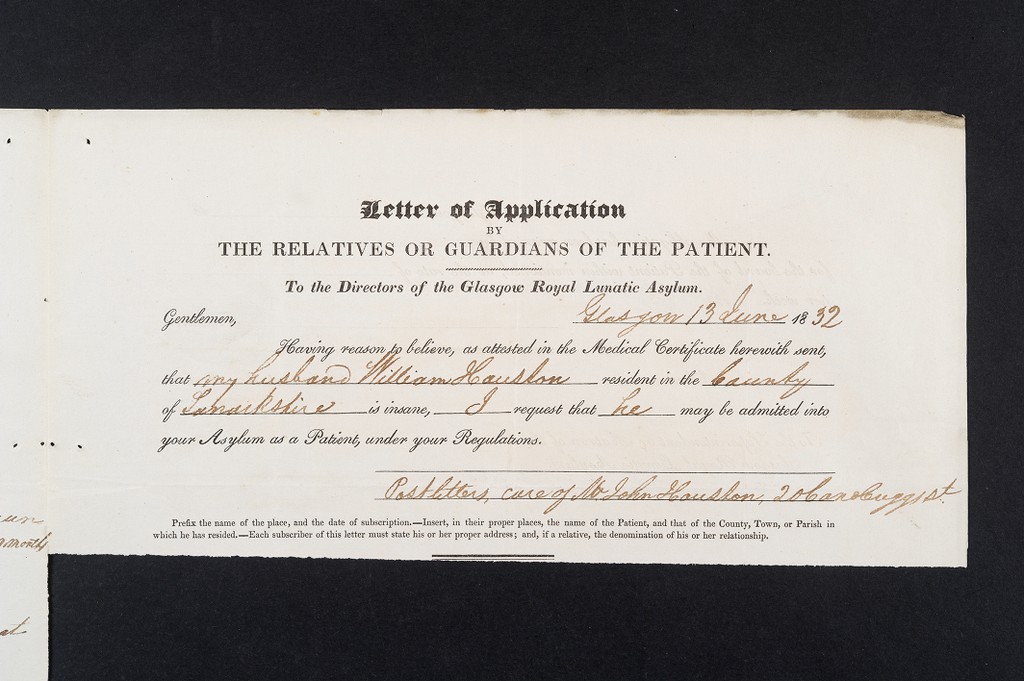 Letter of Application
BY
THE RELATIVES OR GUARDIANS OF THE PATIENT.
To the Directors of the Glasgow Royal Lunatic Asylum.
Glasgow 13 June 1832
Gentlemen,
Having reason to believe, as attested in the Medical Certificate herewith sent,
that my husband William Houston resident in the County
of Lanarkshire is insane, I request that he may be admitted into
your Asylum as a Patient, under your Regulations.
Post letters, care of Mr John Houston, 20
Prefix the name of the place, and the date of subscription.—Insert, in their proper places, the name of the Patient, and that of the County, Town, or Parish in
which he has resided.—Each subscriber of this letter must state his or her proper address; and, if a relative, the denomination of his or her relationship.